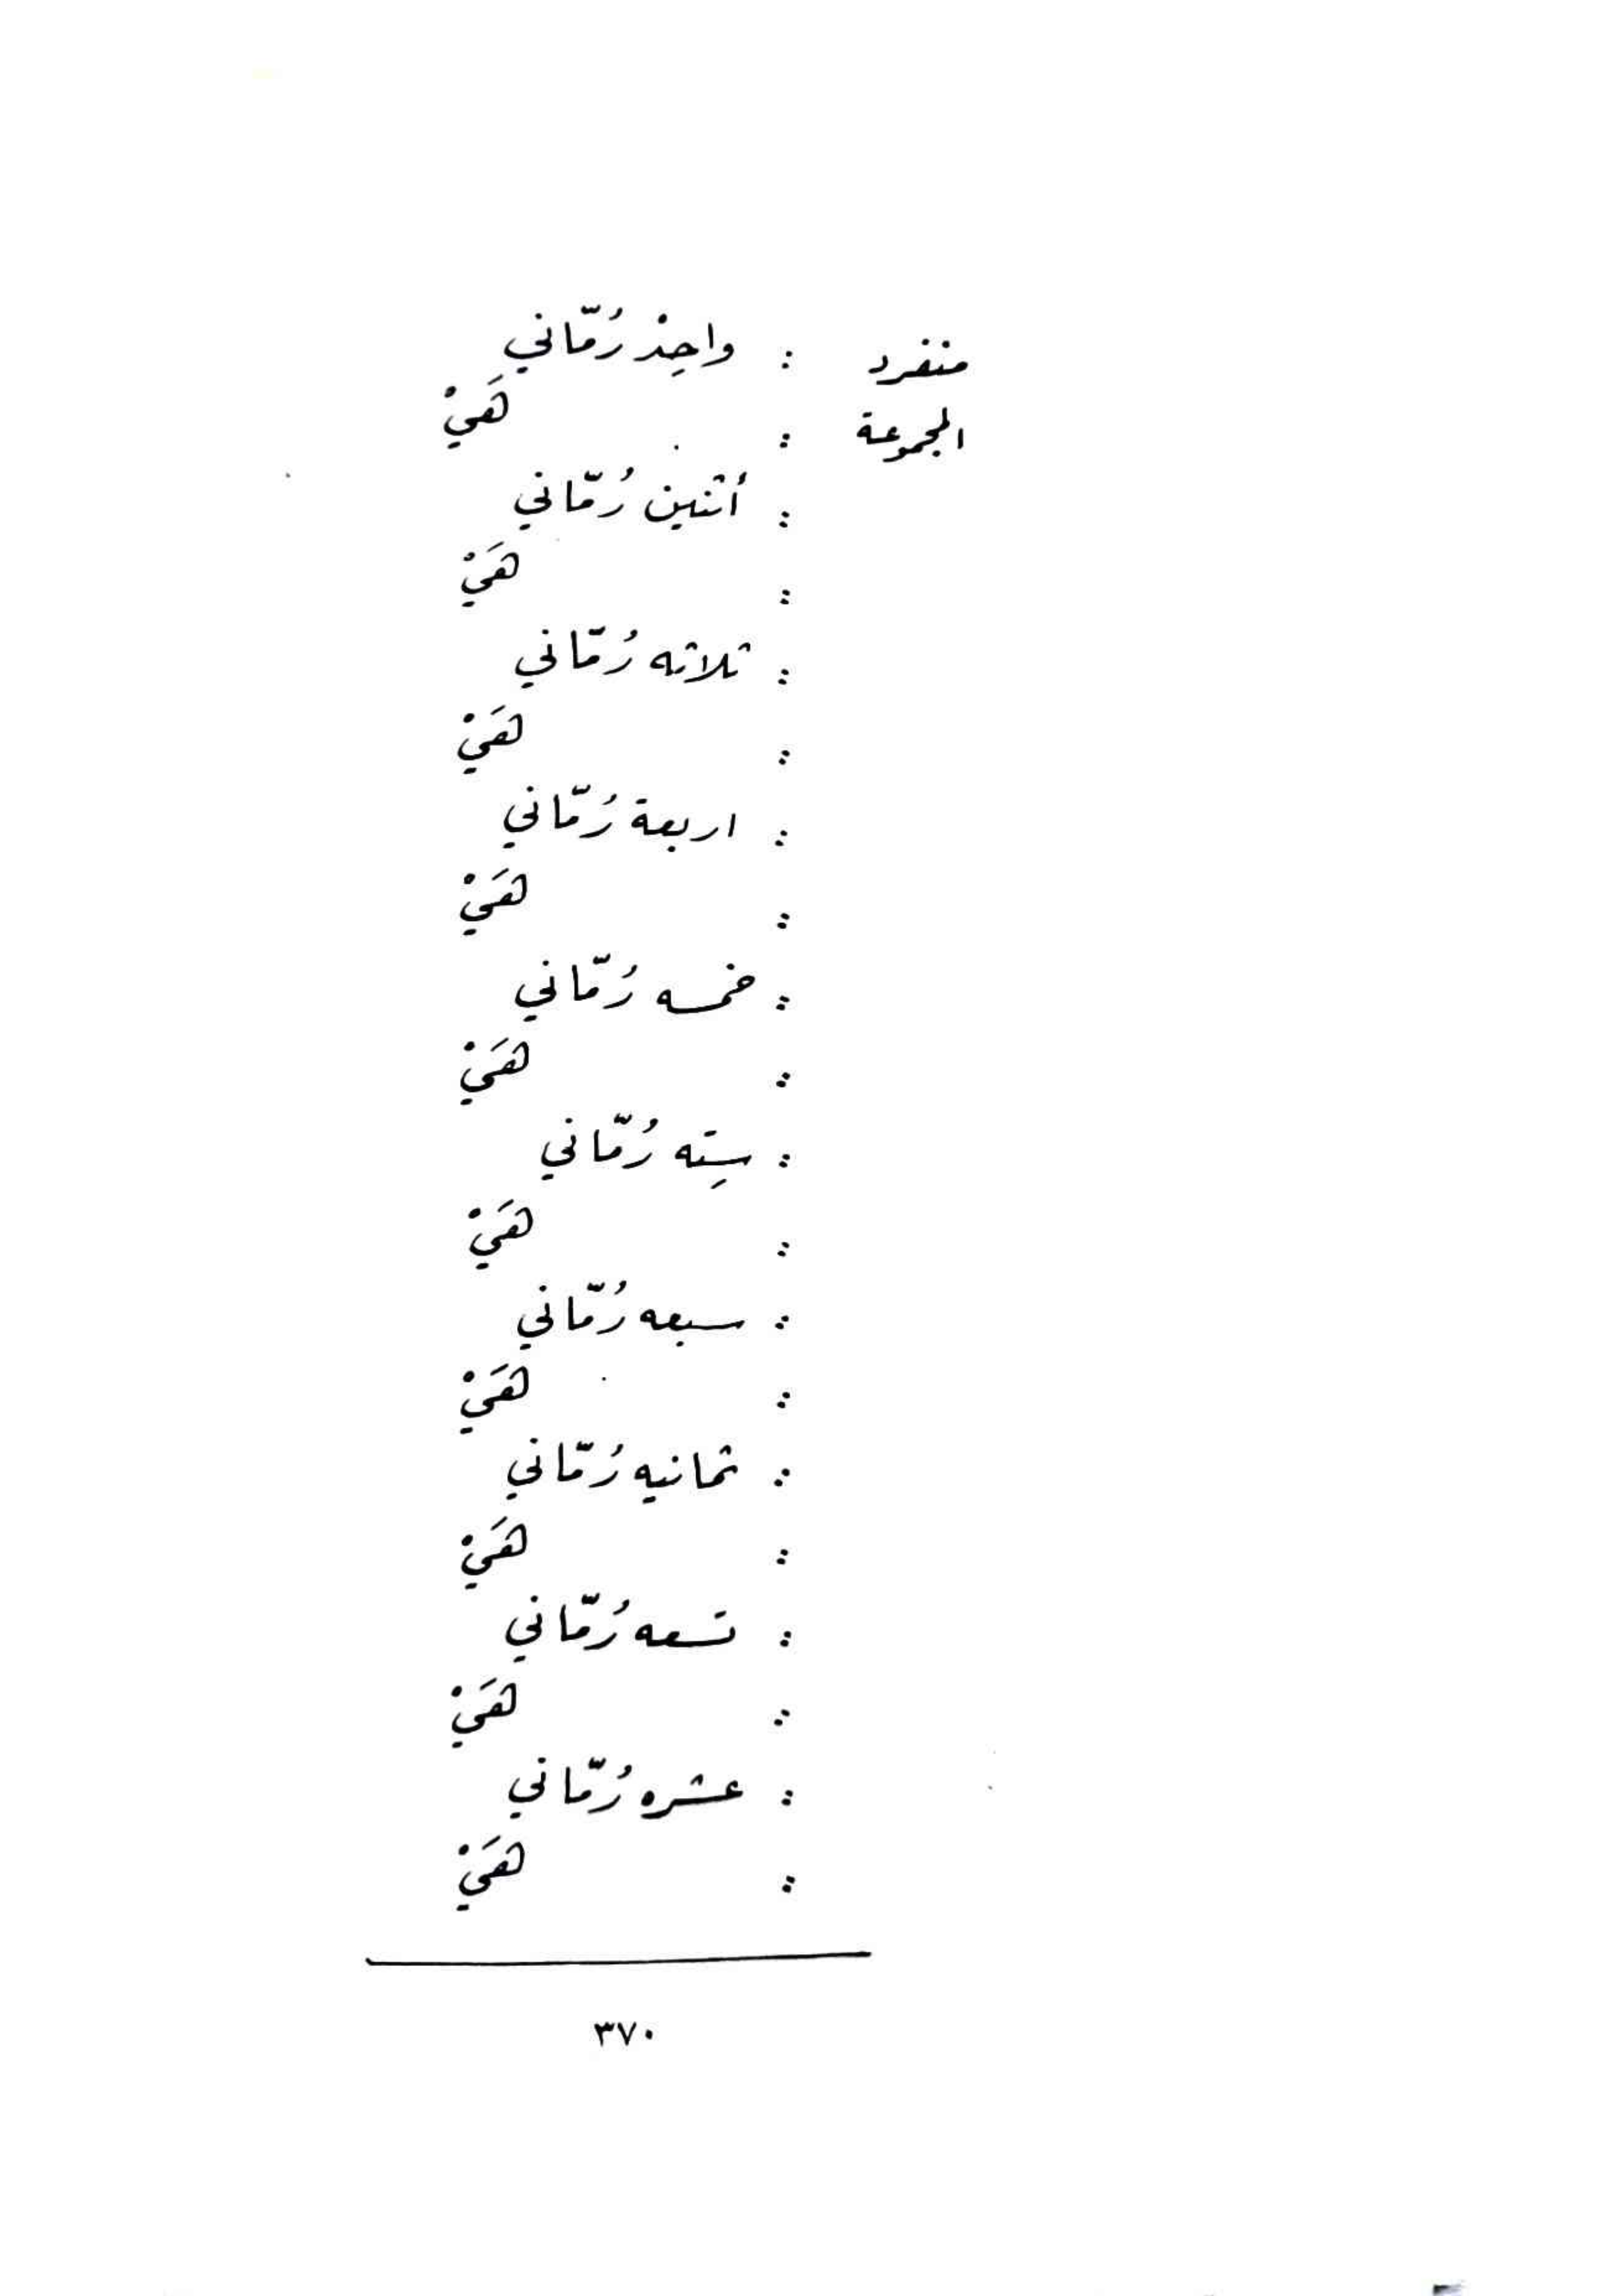 منفرد : واحِدْ رُمّاني
المجموعة : هَيْ
: أثنين رُمّاني
: هَيْ
: ثلاثه رُمّاني
: هَيْ
: اربعة رُمّاني
: هَيْ
: خمسه رُمّاني
: هَيْ
: سِته رُمّاني
: هَيْ
: سبعه رُمّاني
: هَيْ
: ثمانيه رُمّاني
: هَيْ
: تسعه رُمّاني
: هَيْ
: عشره رُمّاني
: هَيْ
٣٧٠